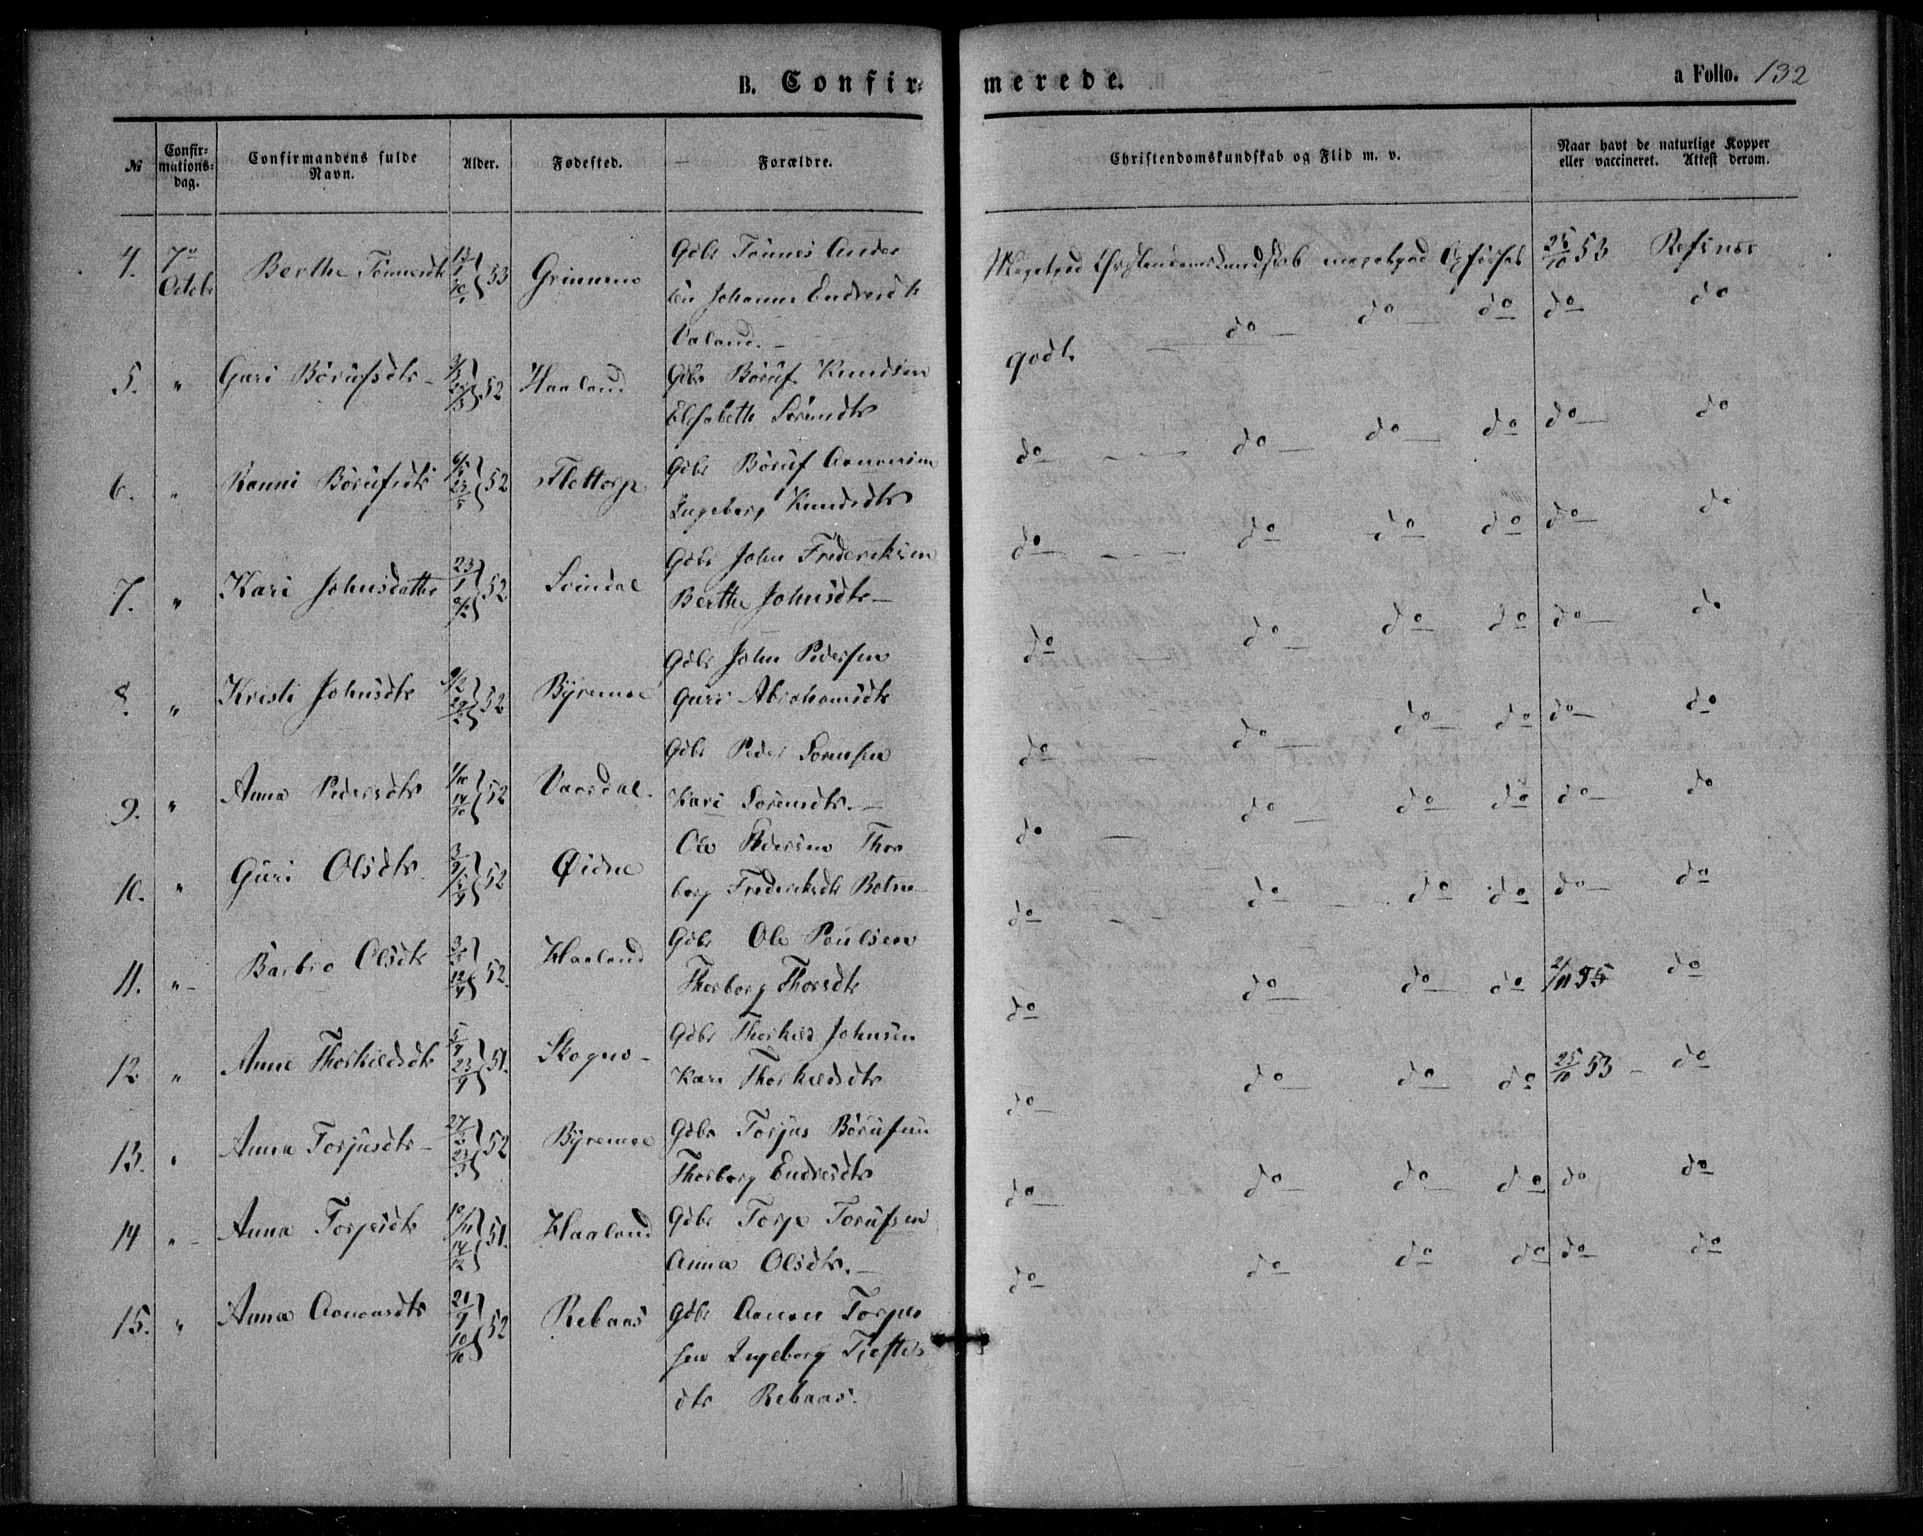 B. Confir-
merede.
a Folio. 132
№
Confir-
mations-
dag.
Confirmandens fulde
Navn.
Alder.
Fødested.
Forældre.
Christendomskundskab og Flid m. v.
Naar havt de naturlige Kopper
eller vaccineret. Attest derom.
4. 7de Octob Berthe Tønnesdtr 53 Grimmo Gdbr Tønnes Ander
sen Johanne Endresdtr
Valand. –
Megetgod Christendomskundskab megetgod Opførsel 25/10 53 Refsnes
5. " Guri Børufsdtr – 52 Haaland Gdbr Børuf Knudsen
Elisabeth Sørensdtr
godt. – do – do – do do – do
6. " Ranni Børufsdtr 52 Flottorp Gdbr Børuf Aanonsen
Ingeborg Knudsdtr
do – do – do – do do – do
7. " Kari Johnsdatter 23/1 52 Svindal Gdbr John Frederiksen
Berthe Johnsdtr –
do – do – do – do do – do
8. " Kristi Johnsdtr 52 Byremoe Gdbr John Pedersen
Guri Abrahamsdtr
do – do – do – do do – do
9. " Anna Pedersdtr 52 Vaardal. Gdbr Peder Sørensen
Kari Sørensdtr. –
do – do – do – do do – do
10. " Guri Olsdtr 52 Øidne Ole Pedersen Thor
borg Frederiksdtr Botne
do – do – do – do do – do
11. " – Barbro Olsdtr 52. Haaland Gdbr Ole Poulsen
Thorborg Thorsdtr
do – do – do – do do – do
12 " Anne Thorkildsdtr 5/9 23/9 51. Skogno – Gdbr Thorkild Johnsen
Kari Thorkildsdtr
do – do – do – do 2/11 55 do
13. " Anna Torjusdtr – 52 Byremoe Gdbr Torjus Børufsen
Thorborg Endresdtr
do – do – do – do 25/10 53 – do
14 " – Anna Torjesdtr 51. Haaland Gdbr Torje Torufsen
Anna Olsdtr. –
do – do – do – do do do
15. " Anna Aanonsdtr 21/9 10/10 52 Rebaas Gdbr Aanon Torjus
sen Ingeborg Tjøstels
dtr Rebaas.
do – do – do do do – do